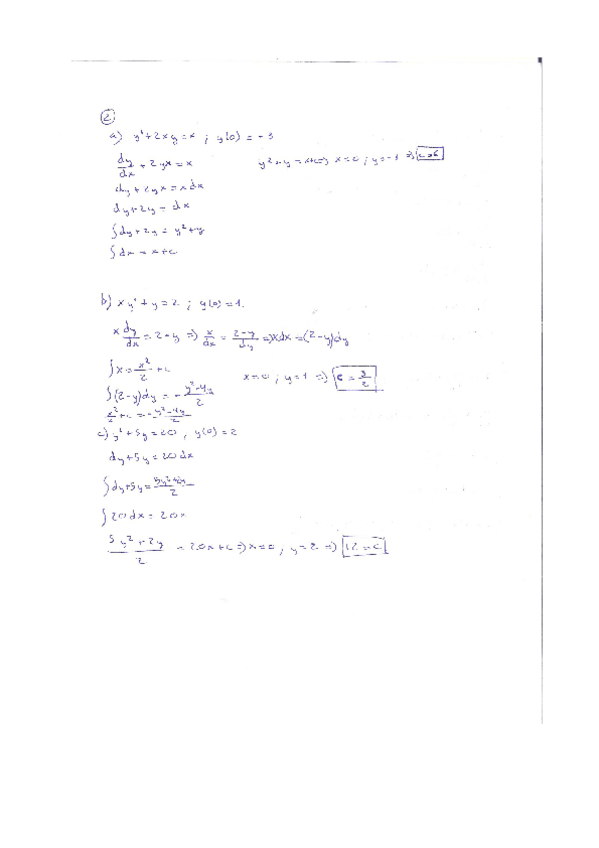 2
a) y' + 2xy = x ; y(0) = -3
dy/dx + 2yx = x
y² + y = x + c => x = 0 ; y = -3 => c = 6
dy + 2yx = x dx
dy + 2y = dx
∫dy + 2y = y² + y
∫dx = x + c
b) xy' + y = 2 ; y(0) = 1.
x dy/dx = 2 - y => x/dx = (2-y)/dy => x dx = (2-y)dy
∫x = x²/2 + c
x = 0 ; y = 1 => c = 3/2
∫(2-y)dy = - (y²-4y)/2
x²/2 + c = - (y²-4y)/2
c) y' + 5y = 20 , y(0) = 2
dy + 5y = 20 dx
∫dy + 5y = (5y²+2y)/2
∫20dx = 20x
(5y² + 2y)/2 = 20x + c => x = 0 ; y = 2 => 12 = c